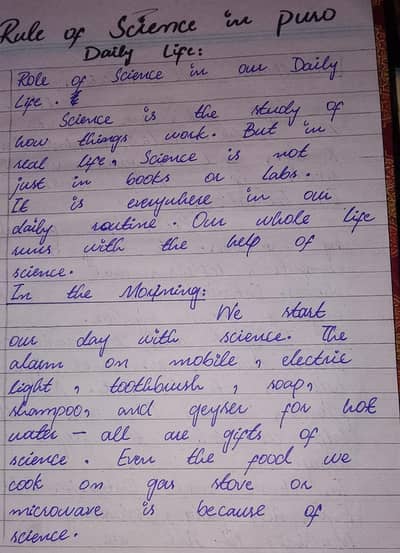 Rule of Science in puro
Daily Life:
Role of Science in our Daily
Life.
Science is the study of
how things work. But in
real life, Science is not
just in books or labs.
It is everywhere in our
daily routine. Our whole life
runs with the help of
science.
In the Morning:
We start
our day with science. The
alarm on mobile, electric
light, toothbrush, soap,
shampoo, and geyser for hot
water - all are gifts of
science. Even the food we
cook on gas stove or
microwave is because of
science.